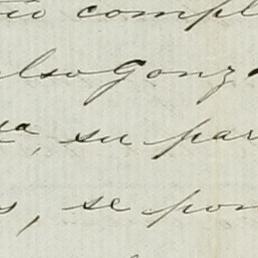 compl
elso Gonz
ª, su par
s, se pon